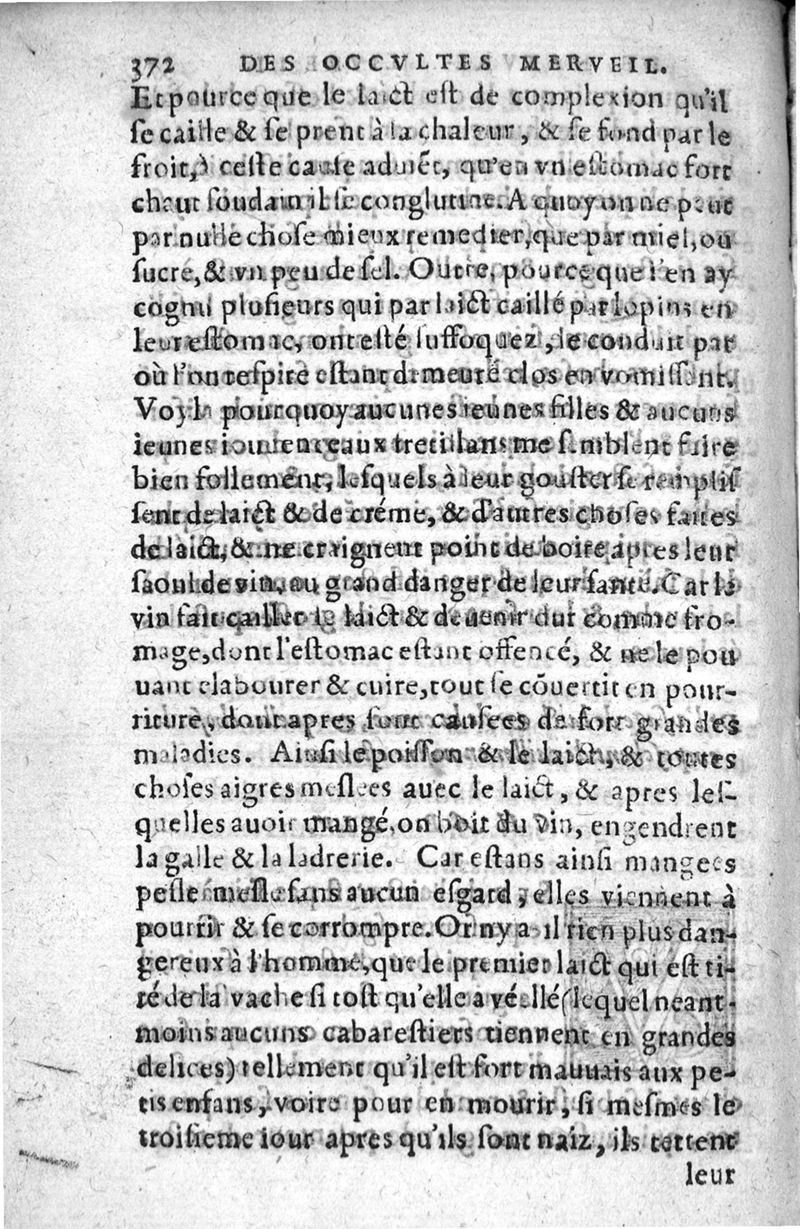 372 DES OCCVLTES MERVEIL.
Et pource que le laict est de complexion qu'il
se caille & se prent à la chaleur, & se fond par le
froit, à ceste cause aduiẽt, qu'en vn estomac fort
chaut soudain il se conglutine. A quoy on ne peut
par nulle chose mieux remedier, que par miel, ou
sucre, & vn peu de sel. Outre, pource que i'en ay
cognu plusieurs qui par laict caillé par lopins en
leur estomac, ont esté suffoquez, le conduit par
où l'on respire estant demeuré clos en vomissant.
Voyla pourquoy aucunes ieunes filles & aucuns
ieunes iouuenceaux tretillans me semblent faire
bien follement, lesquels à leur gouster se remplis
sent de laict & de créme, & d'autres choses faites
de laict, & ne craignent point de boire apres leur
saoul de vin, au grand danger de leur santé. Car le
vin fait cailler le laict & deuenir dur comme fro-
mage, dont l'estomac estant offencé, & ne le pou
uant elabourer & cuire, tout se cõuertit en pour-
riture, dont apres sont causees de fort grandes
maladies. Ainsi le poisson & le laict, & toutes
choses aigres meslees auec le laict, & apres les-
quelles auoir mangé, on boit du vin, engendrent
la galle & la ladrerie. Car estans ainsi mangees
pesle mesle sans aucun esgard, elles viennent à
pourrir & se corrompre. Or n'y a-il rien plus dan-
gereux à l'homme, que le premier laict qui est ti-
ré de la vache si tost qu'elle a véellé (lequel neant-
moins aucuns cabarestiers tiennent en grandes
delices) tellement qu'il est fort mauuais aux pe-
tis enfans, voire pour en mourir, si mesmes le
troisieme iour apres qu'ils sont naiz, ils tettent
leur